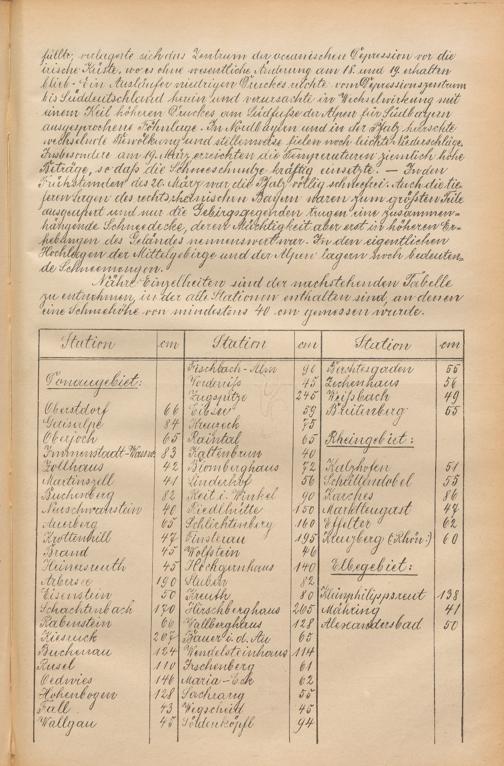 füllte, verlagerte sich das Zentrum der oceanischen Depression vor die
irische Küste, wo es ohne wesentliche Änderung am 18. und 19. erhalten
blieb. Ein Ausläufer niedrigen Druckes reichte vom Depressionszentrum
bis Süddeutschland herein und verursachte in Wechselwirkung mit
einem Keil höheren Druckes am Südfuße der Alpen für Südbayern
ausgesprochene Föhnlage. In Nordbayern und in der Pfalz herrschte
wechselnde Bewölkung und stellenweise fielen noch leichte Niederschläge.
Insbesondere am 19. März erreichten die Temperaturen ziemlich hohe
Beträge, so daß die Schneeschmelze kräftig einsetzte. — In den
Frühstunden des 20. März war die Pfalz völlig schneefrei. Auch die tie-
feren Lagen des rechtsrheinischen Bayern waren zum größten Teile
ausgeapert und nur die Gebirgsgegenden trugen eine zusammen-
hängende Schneedecke, deren Mächtigkeit aber erst in höheren Er-
hebungen des Geländes nennenswert war. In den eigentlichen
Hochlagen der Mittelgebirge und der Alpen lagern noch bedeuten-
de Schneemengen.
Nähere Einzelheiten sind der nachstehenden Tabelle
zu entnehmen, in der alle Stationen enthalten sind, an denen
eine Schneehöhe von mindestens 40 cm gemessen wurde.
Station cm Station cm Station cm
Donaugebiet:
Oberstdorf 66
Gaisalpe 84
Oberjoch 65
Immenstadt-Wasserw. 83
Zollhaus 42
Martinszell 41
Buchenberg 82
Neuschwanstein 40
Auerberg 65
Krottenhill 47
Brand 45
Heinersreuth 45
Arbersee 190
Eisenstein 50
Schachtenbach 170
Rabenstein 66
Kiesruck 207
Buchenau 124
Rusel 110
Oedwies 146
Hohenbogen 128
Fall 43
Wallgau 45
Fischbach-Alm 90
Vorderriß 45
Zugspitze 245
Eibsee 59
Kreuzeck 75
Raintal 65
Kaltenbrun 40
Blomberghaus 72
Linderhof 56
Reit i. Winkel 90
Riedlhütte 150
Schlichtenberg 160
Finsterau 195
Wolfstein 46
Höckgernhaus 140
Stuben 82
Kreuth 80
Hirschberghaus 205
Wallberghaus 128
Bauer i. d. Au 65
Wendelsteinhaus 114
Irschenberg 61
Maria-Eck 62
Sachrang 55
Wegscheid 45
Söldenköpfl 94
Berchtesgaden 55
Zechenhaus 56
Weißbach 49
Breitenberg 55
Rheingebiet:
Katzhofen 51
Schöllendobel 55
Karches 86
Marktleugast 47
Effelter 62
Kreuzberg (Rhön:) 60
Elbegebiet:
Kühnphilippsreut 138
Mähring 41
Alexandersbad 50